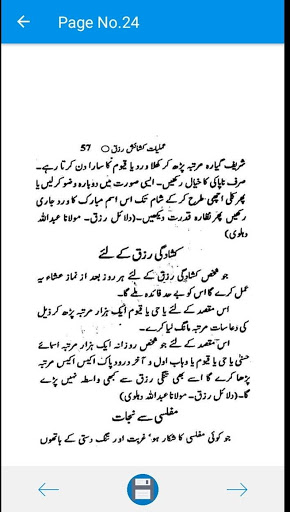 Page No.24
عملیات کشائش رزق ○ 57
شریف گیارہ مرتبہ پڑھ کر کھلا ورد یا قیوم کا سارا دن کرتا رہے۔
صرف ناپاکی کا خیال رکھیں۔ ایسی صورت میں دوبارہ وضو کر لیں یا
پھر کلی اچھی طرح کر کے شام تک اس اسم مبارک کا ورد جاری
رکھیں پھر نظارہ قدرت دیکھیں۔ (دلائل رزق۔ مولانا عبداللہ
دہلوی)
کشادگی رزق کے لئے
جو شخص کشادگی رزق کے لئے ہر روز بعد از نماز عشاء یہ
عمل کرے گا اس کو بے حد فائدہ ملے گا۔
اس مقصد کے لئے یا حی یا قیوم ایک ہزار مرتبہ پڑھ کر ذیل
کی دعا سات مرتبہ مانگ لیا کرے۔
اس مقصد کے لئے جو شخص روزانہ ایک ہزار مرتبہ اسمائے
حسنیٰ یا حی یا قیوم یا وہاب اول و آخر درود پاک اکیس اکیس مرتبہ
پڑھا کرے گا اسے بھی تنگی رزق سے کبھی واسطہ نہیں پڑے
گا۔ (دلائل رزق۔ مولانا عبداللہ دہلوی)
مفلسی سے نجات
جو کوئی مفلسی کا شکار ہو' غربت اور تنگ دستی کے ہاتھوں